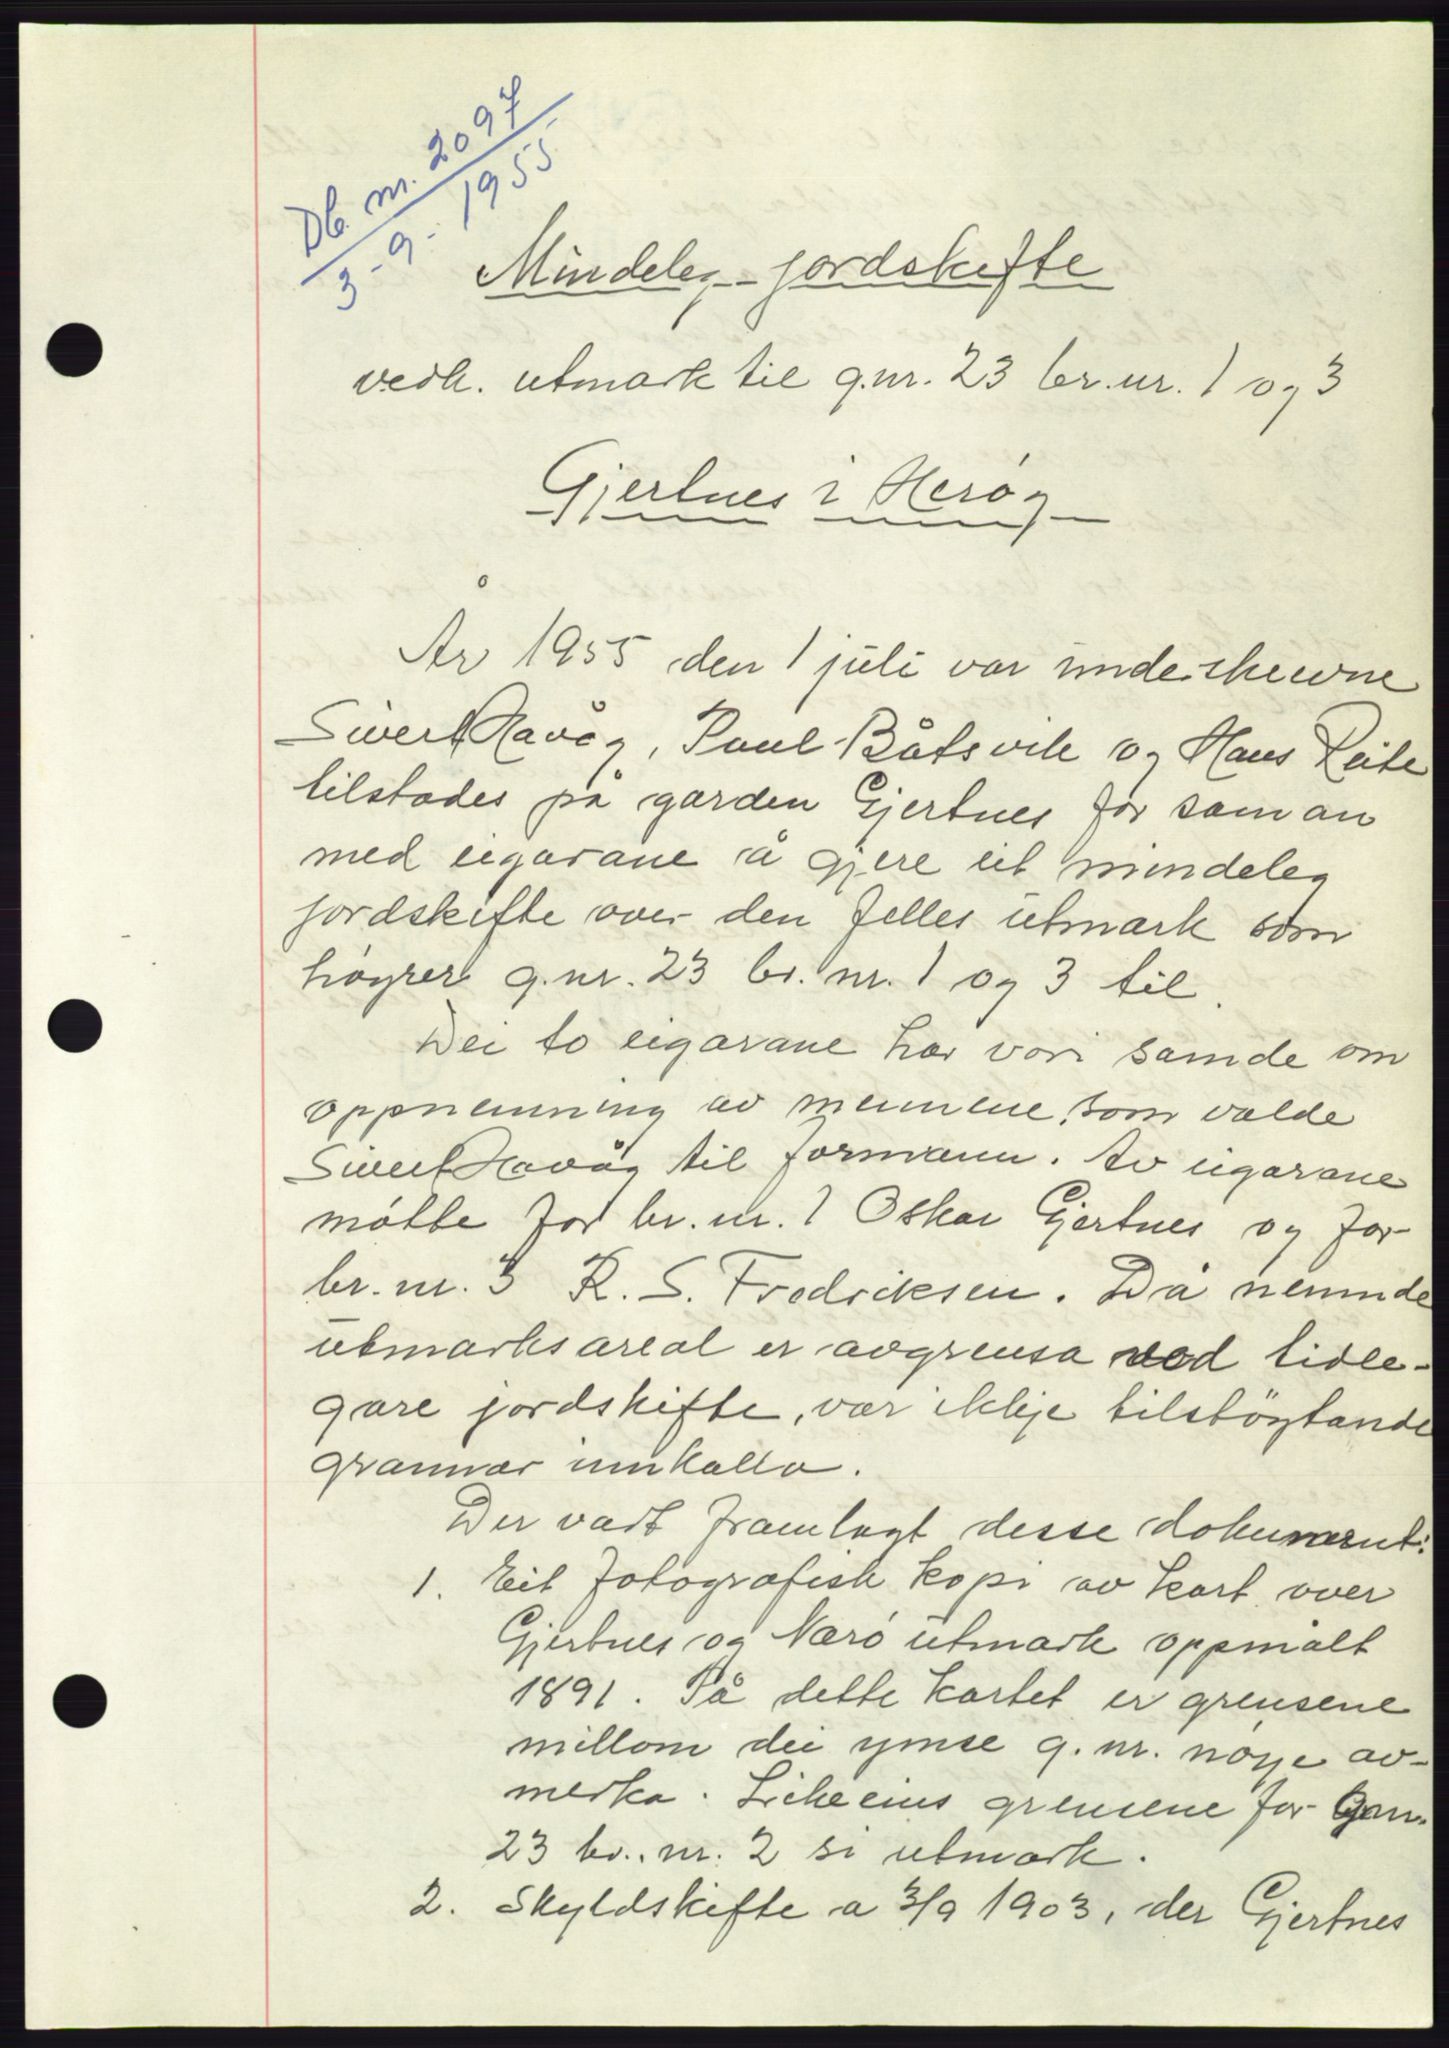 Db. nr. 2097
3-9-1955
Mindeleg jordskifte
vedk. utmark til g.nr. 23 br.nr. 1 og 3
Gjertnes i Herøy
År 1955 den 1 juli var underskrevne
Sivert Havåg, Paul Båtsvik og Hans Reite
tilstades på garden Gjertnes for saman
med eigarane å gjere eit mindeleg
jordskifte over den felles utmark som
høyrer g.nr. 23 br. nr. 1 og 3 til.
Dei to eigarane har vori samde om
oppnemning av mennene, som valde
Sivert Havåg til formann. Av eigarane
møtte for br. nr. 1 Oskar Gjertnes og for
br. nr. 3 R. S. Fredriksen. Då nemnde
utmarksareal er avgrensa ved tidle-
gare jordskifte, var ikkje tilstøytande
grannar innkalla.
Der vart framlagt desse dokument:
1. Eit fotografisk kopi av kart over
Gjertnes og Nærø utmark oppmålt
1891. På dette kartet er grensene
millom dei ymse g. nr. nøye av-
merka. Likeeins grensene for Gnr.
23 br. nr. 2 si utmark.
2. Skyldskifte a 3/9 1903, der Gjertnes